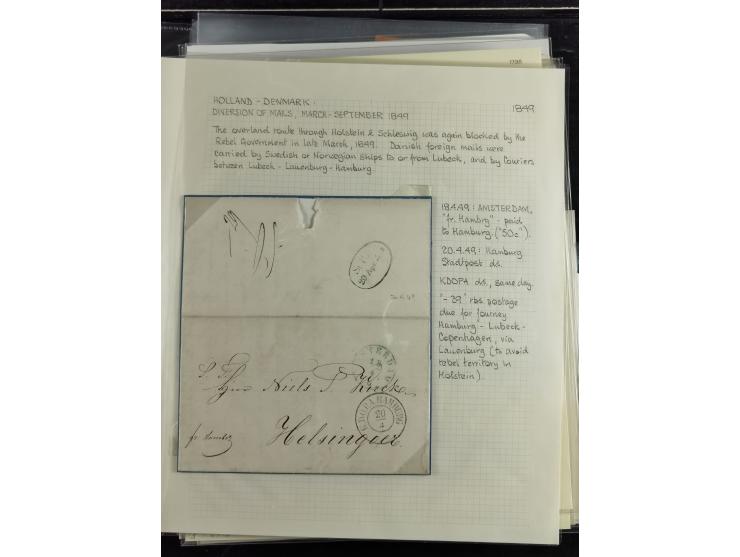 1798
HOLLAND - DENMARK:
1849
DIVERSION OF MAILS, MARCH - SEPTEMBER 1849
The overland route through Holstein & Schleswig was again blocked by the
Rebel Government in late March, 1849. Danish foreign mails were
carried by Swedish or Norwegian ships to or from Lubeck, and by Couriers
between Lubeck - Lauenburg - Hamburg.
18.4.49: AMSTERDAM,
"fr. Hambrg" - paid
to Hamburg. ("50c").
20.4.49: Hamburg
Stadtpost ds.
KDOPA ds., same day.
"- 29" rbs. postage
due for journey
Hamburg - Lubeck -
Copenhagen, via
Lauenburg (to avoid
rebel territory in
Holstein).
20 Apr
Niels
K.D.O.P.A. HAMBURG
20
4
Helsingoer.